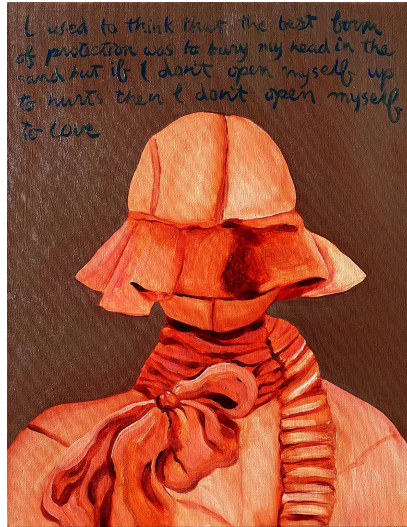 I used to think that the best form
of protection was to bury my head in the
sand but if I don't open myself up
to hurts then I don't open myself
to love